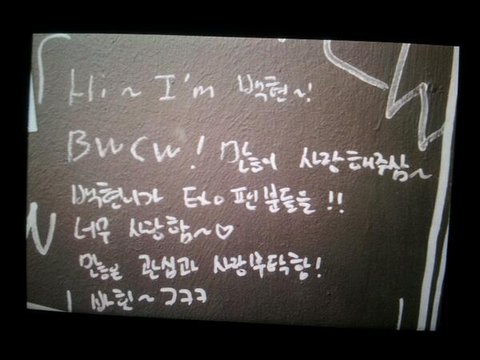 Hi~ I'm 백현~!
BWCW! 많이 사랑해주삼~
백현니가 Exo팬분들을!!
너무 사랑함~♡
많은 관심과 사랑부탁항!
바휘~ ㅋㅋㅋ